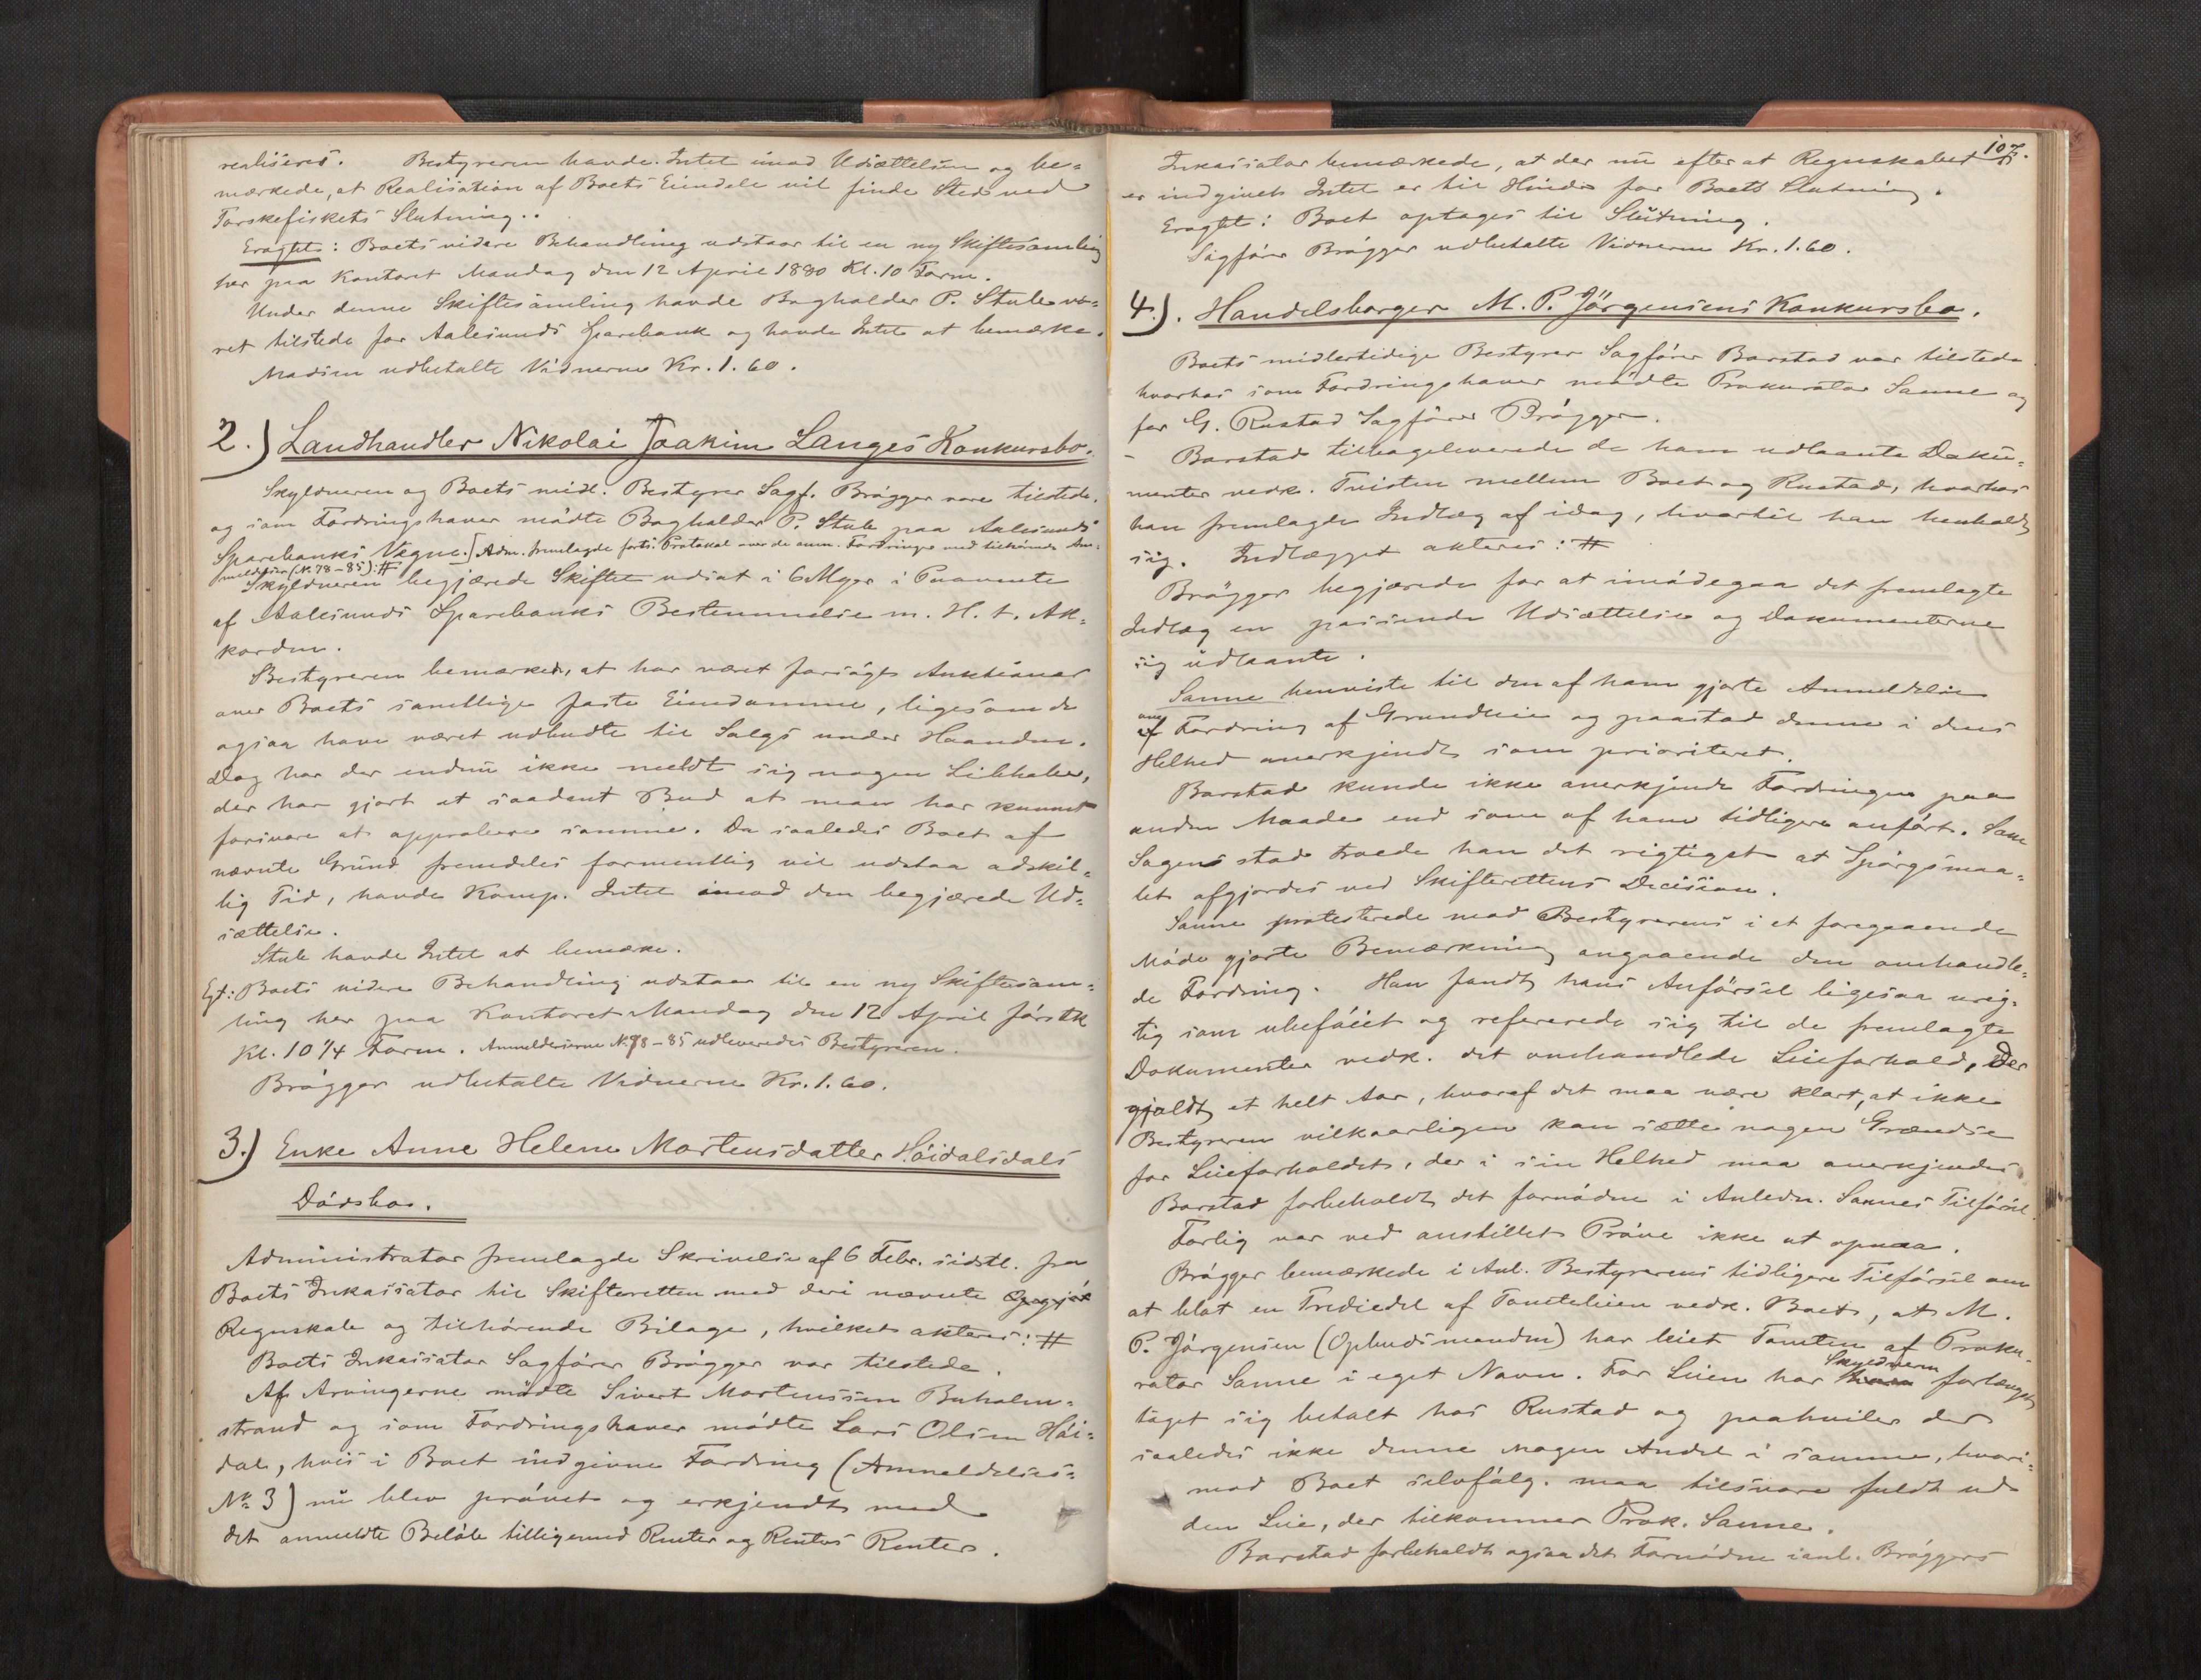 realiseres. Bestyreren havde Intet imod Udsættelsen og be=
mærkede, at Realisation af Boets Eiendele vil finde Sted ved
Torskefiskets Slutning.
Eragtet: Boets videre Behandling udstaar til en ny Skiftesamling
her paa Kontoret Mandag den 12 April 1880 Kl. 10 Form.
Under denne Skiftesamling havde Bogholder P. Stub væ=
ret tilstede for Aalesunds Sparebank og havde Intet at bemærke.
Madsen udbetalte Vidnerne Kr. 1.60.
2.) Landhandler Nikolai Joakim Langes Konkursbo.
Skyldneren og Boets midl. Bestyrer Sagf. Brøgger vare tilstede,
og som Fordringshaver mødte Bogholder P. Stub paa Aalesunds
Sparebanks Vegne. [Adm. fremlagde forts. Protokol over de anm. Fordringer med tilhørende An=
meldelser (N. 78-85): #
Skyldneren begjærede Skiftet udsat i 6 Uger i Paavente
af Aalesunds Sparebanks Bestemmelse m. H. t. Ak=
korden.
Bestyreren bemærkede, at har været forsøgt Auktioner
over Boets samtlige faste Eiendomme, ligesom de
ogsaa have været udbudte til Salgs under Haanden.
Dog har der endnu ikke meldt sig nogen Liebhaber,
der har gjort et saadant Bud at man har kunnet
forsvare at approbere samme. Da saaledes Boet af
nævnte Grund fremdeles formentlig vil udstaa adskil=
lig Tid, havde Komp. Intet imod den begjærede Ud=
sættelse.
Stub havde Intet at bemærke.
Egt: Boets videre Behandling udstaar til en ny Skiftesam=
ling her paa Kontoret Mandag den 12 April førstk
Kl. 10 1/4 Form. Anmeldelserne N. 78-85 udleveredes Bestyreren.
Brøgger udbetalte Vidnerne Kr. 1.60.
3.) Enke Anne Helene Martensdatter Høidalsdals
Dødsbo.
Administrator fremlagde Skrivelse af 6 Febr. sidstl. fra
Boets Inkassator til Skifteretten med deri nævnte
Regnskab og tilhørende Bilage, hvilket akteres: #
Boets Inkassator Sagfører Brøgger var tilstede.
Af Arvingerne mødte Sivert Martenssen Buholm=
strand og som Fordringshaver mødte Lars Olsen Høi=
dal, hvis i Boet indgivne Fordring (Anmeldelses=
No 3) nu blev prøvet og erkjendt med
det anmeldte Beløb tilligemed Renter og Renters Renter.
107.
Inkassator bemærkede, at der nu efter at Regnskabet
er indgivet Intet er til Hinder for Boets Slutning.
Eragtet: Boet optages til Slutning.
Sagfører Brøgger udbetalte Vidnerne Kr. 1.60.
4.). Handelsborger M. P. Jørgensens Konkursbo.
Boets midlertidige Bestyrer Sagfører Barstad var tilstede
hvorhos som Fordringshaver mødte Prokurator Sanne og
for G. Rustad Sagfører Brøgger.
- Barstad tilbageleverede de ham udlaante Doku=
menter vedk. Tvisten mellem Boet og Rustad, hvorhos
han fremlagde Indlæg af idag, hvortil han henholdt
sig. Indlægget akteres: #
Brøgger begjærede for at imødegaa det fremlagte
Indlæg en passende Udsættelse og Dokumenterne
sig udlaante.
Sanne henviste til den af ham gjorte Anmeldelse
ang
af Fordring af Grundleie og paastod denne i dens
Helhed anerkjendt som prioriteret.
Barstad kunde ikke anerkjende Fordringen paa
anden Maade end som af ham tidligere anført. Som
Sagens stod troede han det rigtigst at Spørgsmaa=
let afgjordes ved Skifterettens Decision.
Sanne protesterede mod Bestyrerens i et foregaaende
Møde gjorte Bemærkning angaaende den omhandle=
de Fordring. Han fandt hans Anførsel ligesaa urig=
tig som ubeføiet og refererede sig til de fremlagte
Dokumenter vedk. det omhandlede Leieforhold, der
gjaldt et helt Aar, hvoraf det maa være klart, at ikke
Bestyreren vilkaarligen kan sætte nogen Grændse
for Leieforholdet, der i sin Helhed maa anerkjendes
Barstad forbeholdt det fornødne i Anledn. Sannes Tilførsel.
Forlig var ved anstillet Prøve ikke at opnaa.
Brøgger bemærkede i Anl. Bestyrerens tidligere Tilførsel om
at blot en Trediedel af Tomteleien vedk. Boet, at M.
P. Jørgensen (Opbudsmanden) har leiet Tomten af Proku=
rator Sanne i eget Navn. For Leien har Skyldneren forlængst
taget sig betalt hos Rustad og paahviler der
saaledes ikke denne nogen Andel i samme, hvori=
mod Boet selvfølg. maa tilsvare fuldt ud
den Leie, der tilkommer Prok. Sanne.
Barstad forbeholdt ogsaa det Fornødne i anl. Brøggers